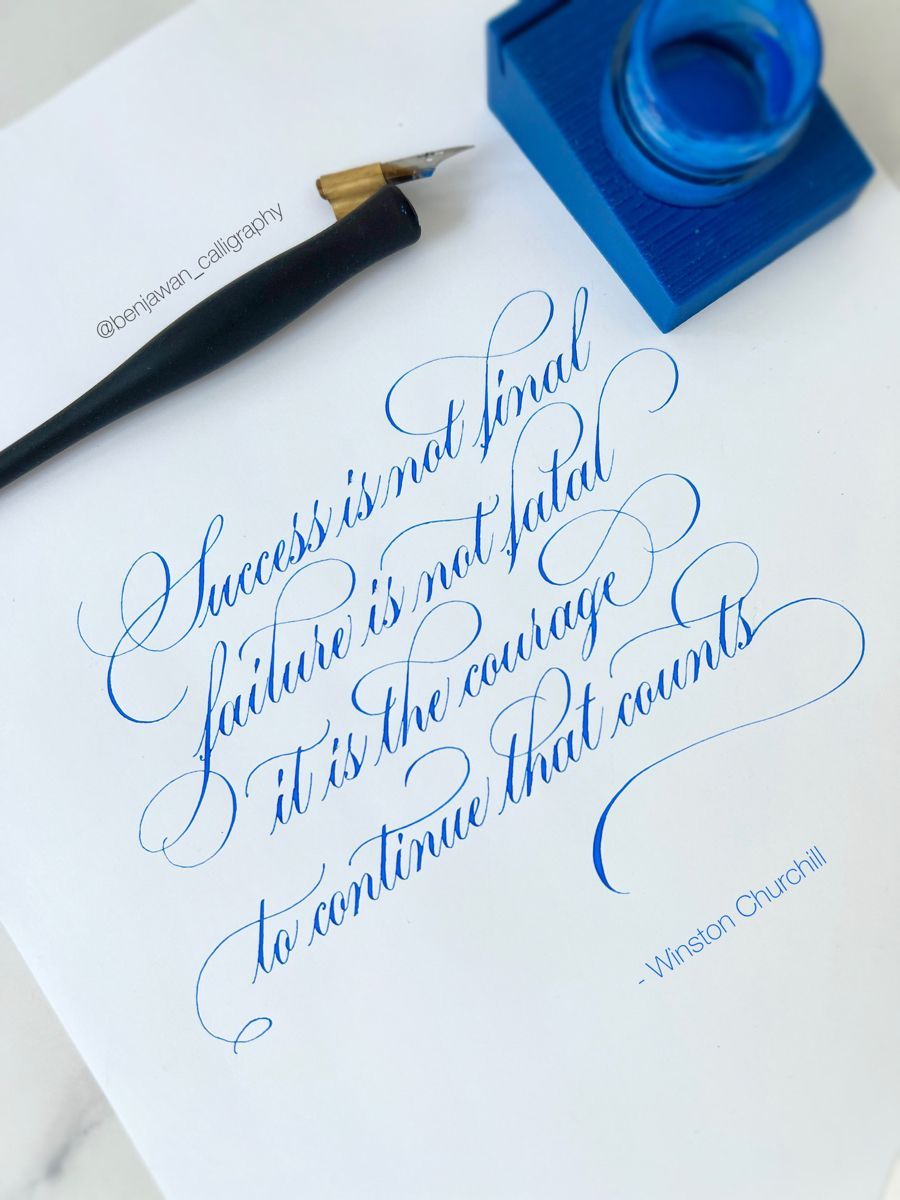 @benjawan_calligraphy
Success is not final
failure is not fatal
it is the courage
to continue that counts
- Winston Churchill